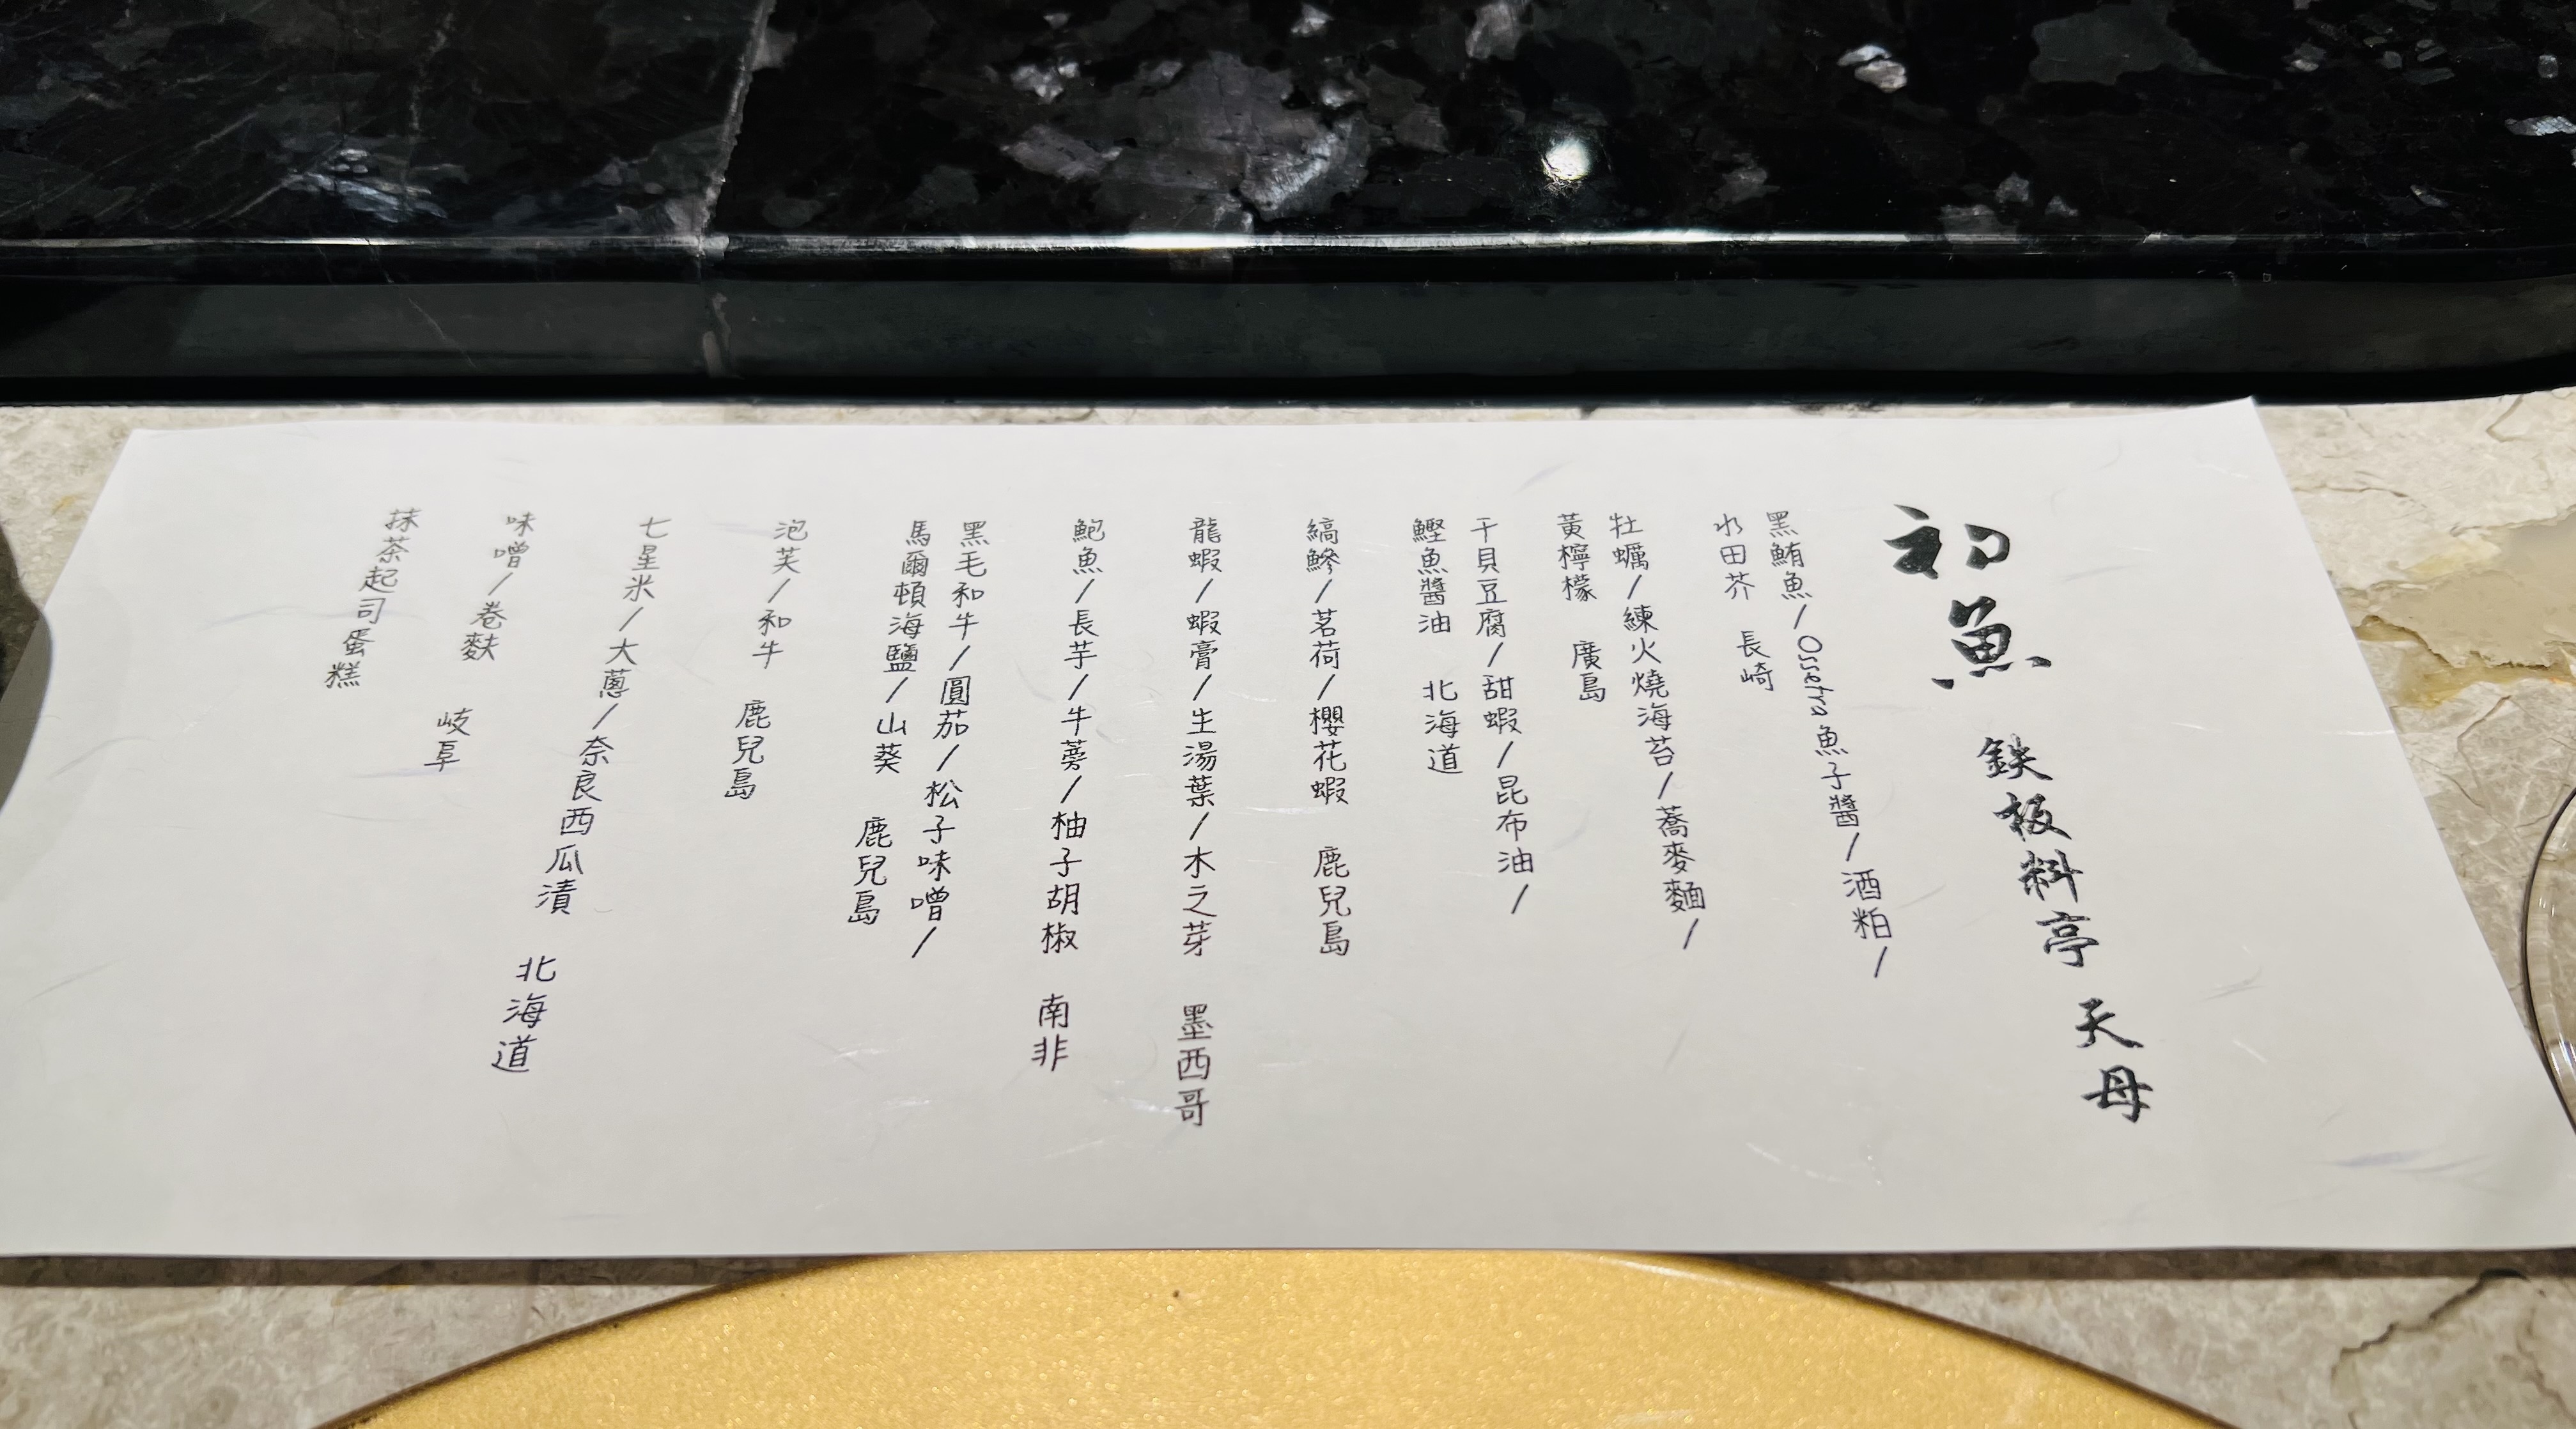 初魚 鉄板料亭 天母
黑鮪魚/Ossetra魚子醬/酒粕/
水田芥 長崎
牡蠣/練火燒海苔/蕎麥麵/
黃檸檬 廣島
干貝豆腐/甜蝦/昆布油/
鰹魚醬油 北海道
縞鰺/茗荷/櫻花蝦 鹿兒島
龍蝦/蝦膏/生湯葉/木之芽 墨西哥
鮑魚/長芋/牛蒡/柚子胡椒 南非
黑毛和牛/圓茄/松子味噌/
馬爾頓海鹽/山葵 鹿兒島
泡芙/和牛 鹿兒島
七星米/大蔥/奈良西瓜漬 北海道
味噌/卷麩 岐阜
抹茶起司蛋糕